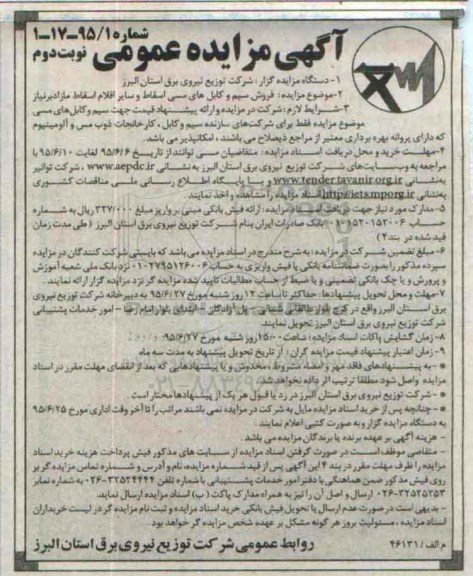 شماره ۹۵/۱-۱۷-۱
نوبت دوم
آگهی مزایده عمومی
۱- دستگاه مزایده گزار: شرکت توزیع نیروی برق استان البرز
۲- موضوع مزایده: فروش سیم و کابل های مسی اسقاط و سایر اقلام اسقاط مازاد برنیاز
۳- شرایط لازم: شرکت در مزایده و ارائه پیشنهاد قیمت جهت سیم و کابل های مسی
موضوع مزایده فقط برای شرکت های سازنده سیم و کابل، کارخانجات ذوب مس و آلومینیوم
که دارای پروانه بهره برداری معتبر از مراجع ذیصلاح می باشند، امکانپذیر می باشد.
۴- مهلت خرید و محل دریافت اسناد مزایده: متقاضیان مسی توانند از تاریخ ۹۵/۶/۶ لغایت ۹۵/۶/۱۰ با
مراجعه به وب سایت های شرکت توزیع نیروی برق استان البرز به نشانی www.aepdc.ir ، شرکت توانیر
به نشانی www.tender.tavanir.org.ir و یا پایگاه اطلاع رسانی ملی مناقصات کشوری
به نشانی http://iets.mporg.ir اسناد مزایده را مشاهده و اخذ نمایند.
۵- مدارک مورد نیاز جهت دریافت اسناد مزایده: ارائه فیش بانکی مبنی بر واریز مبلغ ۳۳۷/۰۰۰ ریال به شماره
حساب بانک صادرات ایران بنام شرکت توزیع نیروی برق استان البرز (طی مدت زمان
قید شده در بند ۴)
۶- مبلغ تضمین شرکت در مزایده: به شرح مندرج در اسناد مزایده می باشد که بایستی شرکت کنندگان در مزایده
سپرده مذکور را بصورت ضمانتنامه بانکی یا فیش واریزی به حساب نزد بانک ملی شعبه آموزش
و پرورش و یا چک بانکی تضمینی و یا ضبط از حساب مطالبات تایید شده مزایده گر نزد مزایده گزار ارائه نمایند.
۷- مهلت و محل تحویل پیشنهادها: حداکثر تا ساعت ۱۲ روز شنبه مورخ ۹۵/۶/۲۷ به دبیرخانه شرکت توزیع نیروی
برق استان البرز واقع در کرج بلوار طالقانی شمالی - پل آزادگان - ابتدای بلوار امام رضا - امور خدمات پشتیبانی
شرکت توزیع نیروی برق استان البرز تحویل نمایند.
۸- زمان گشایش پاکات اسناد مزایده: ساعت ۱۵:۰۰ روز شنبه مورخ ۹۵/۶/۲۷
۹- زمان اعتبار پیشنهاد قیمت مزایده گران: از تاریخ تحویل پیشنهاد به مدت سه ماه
- به پیشنهادهای فاقد مهر و امضاء مشروط، مخدوش و یا پیشنهادهایی که بعد از انقضای مهلت مقرر در اسناد
مزایده واصل شود مطلقا ترتیب اثر داده نخواهد شد.
- شرکت توزیع نیروی برق استان البرز در رد یا قبول هر یک از پیشنهادها مختار است.
- چنانچه پس از خرید اسناد مزایده مایل به شرکت در مزایده نمی باشند مراتب را تا آخر وقت اداری مورخ ۹۵/۶/۲۵
به دستگاه مزایده گزار و به صورت کتبی اعلام نمایند.
- هزینه آگهی بر عهده برنده یا برندگان مزایده می باشد.
- متقاضی موظف است در صورت گرفتن اسناد مزایده از سایت های مذکور فیش پرداخت هزینه خرید اسناد
مزایده را ظرف مهلت مقرر در بند ۴ این آگهی پس از قید شماره مزایده، نام و آدرس و شماره تماس مزایده گر بر
روی فیش مذکور ضمن هماهنگی با دفتر امور خدمات پشتیبانی با شماره تلفن ۳۲۵۲۴۴۴۴-۰۲۶ به شماره نمابر
۳۲۵۲۵۲۵۳-۰۲۶ ارسال و اصل آن را نیز به همراه مدارک پاکت (ب) اسناد مزایده ارسال نماید.
- بدیهی است در صورت عدم ارسال یا تحویل فیش بانکی خرید اسناد مزایده و ثبت نام مزایده گر در لیست خریداران
اسناد مزایده، مسئولیت بروز هر گونه مشکل بر عهده شخص مزایده گر خواهد بود.
م الف / ۴۶۱۳۱
روابط عمومی شرکت توزیع نیروی برق استان البرز